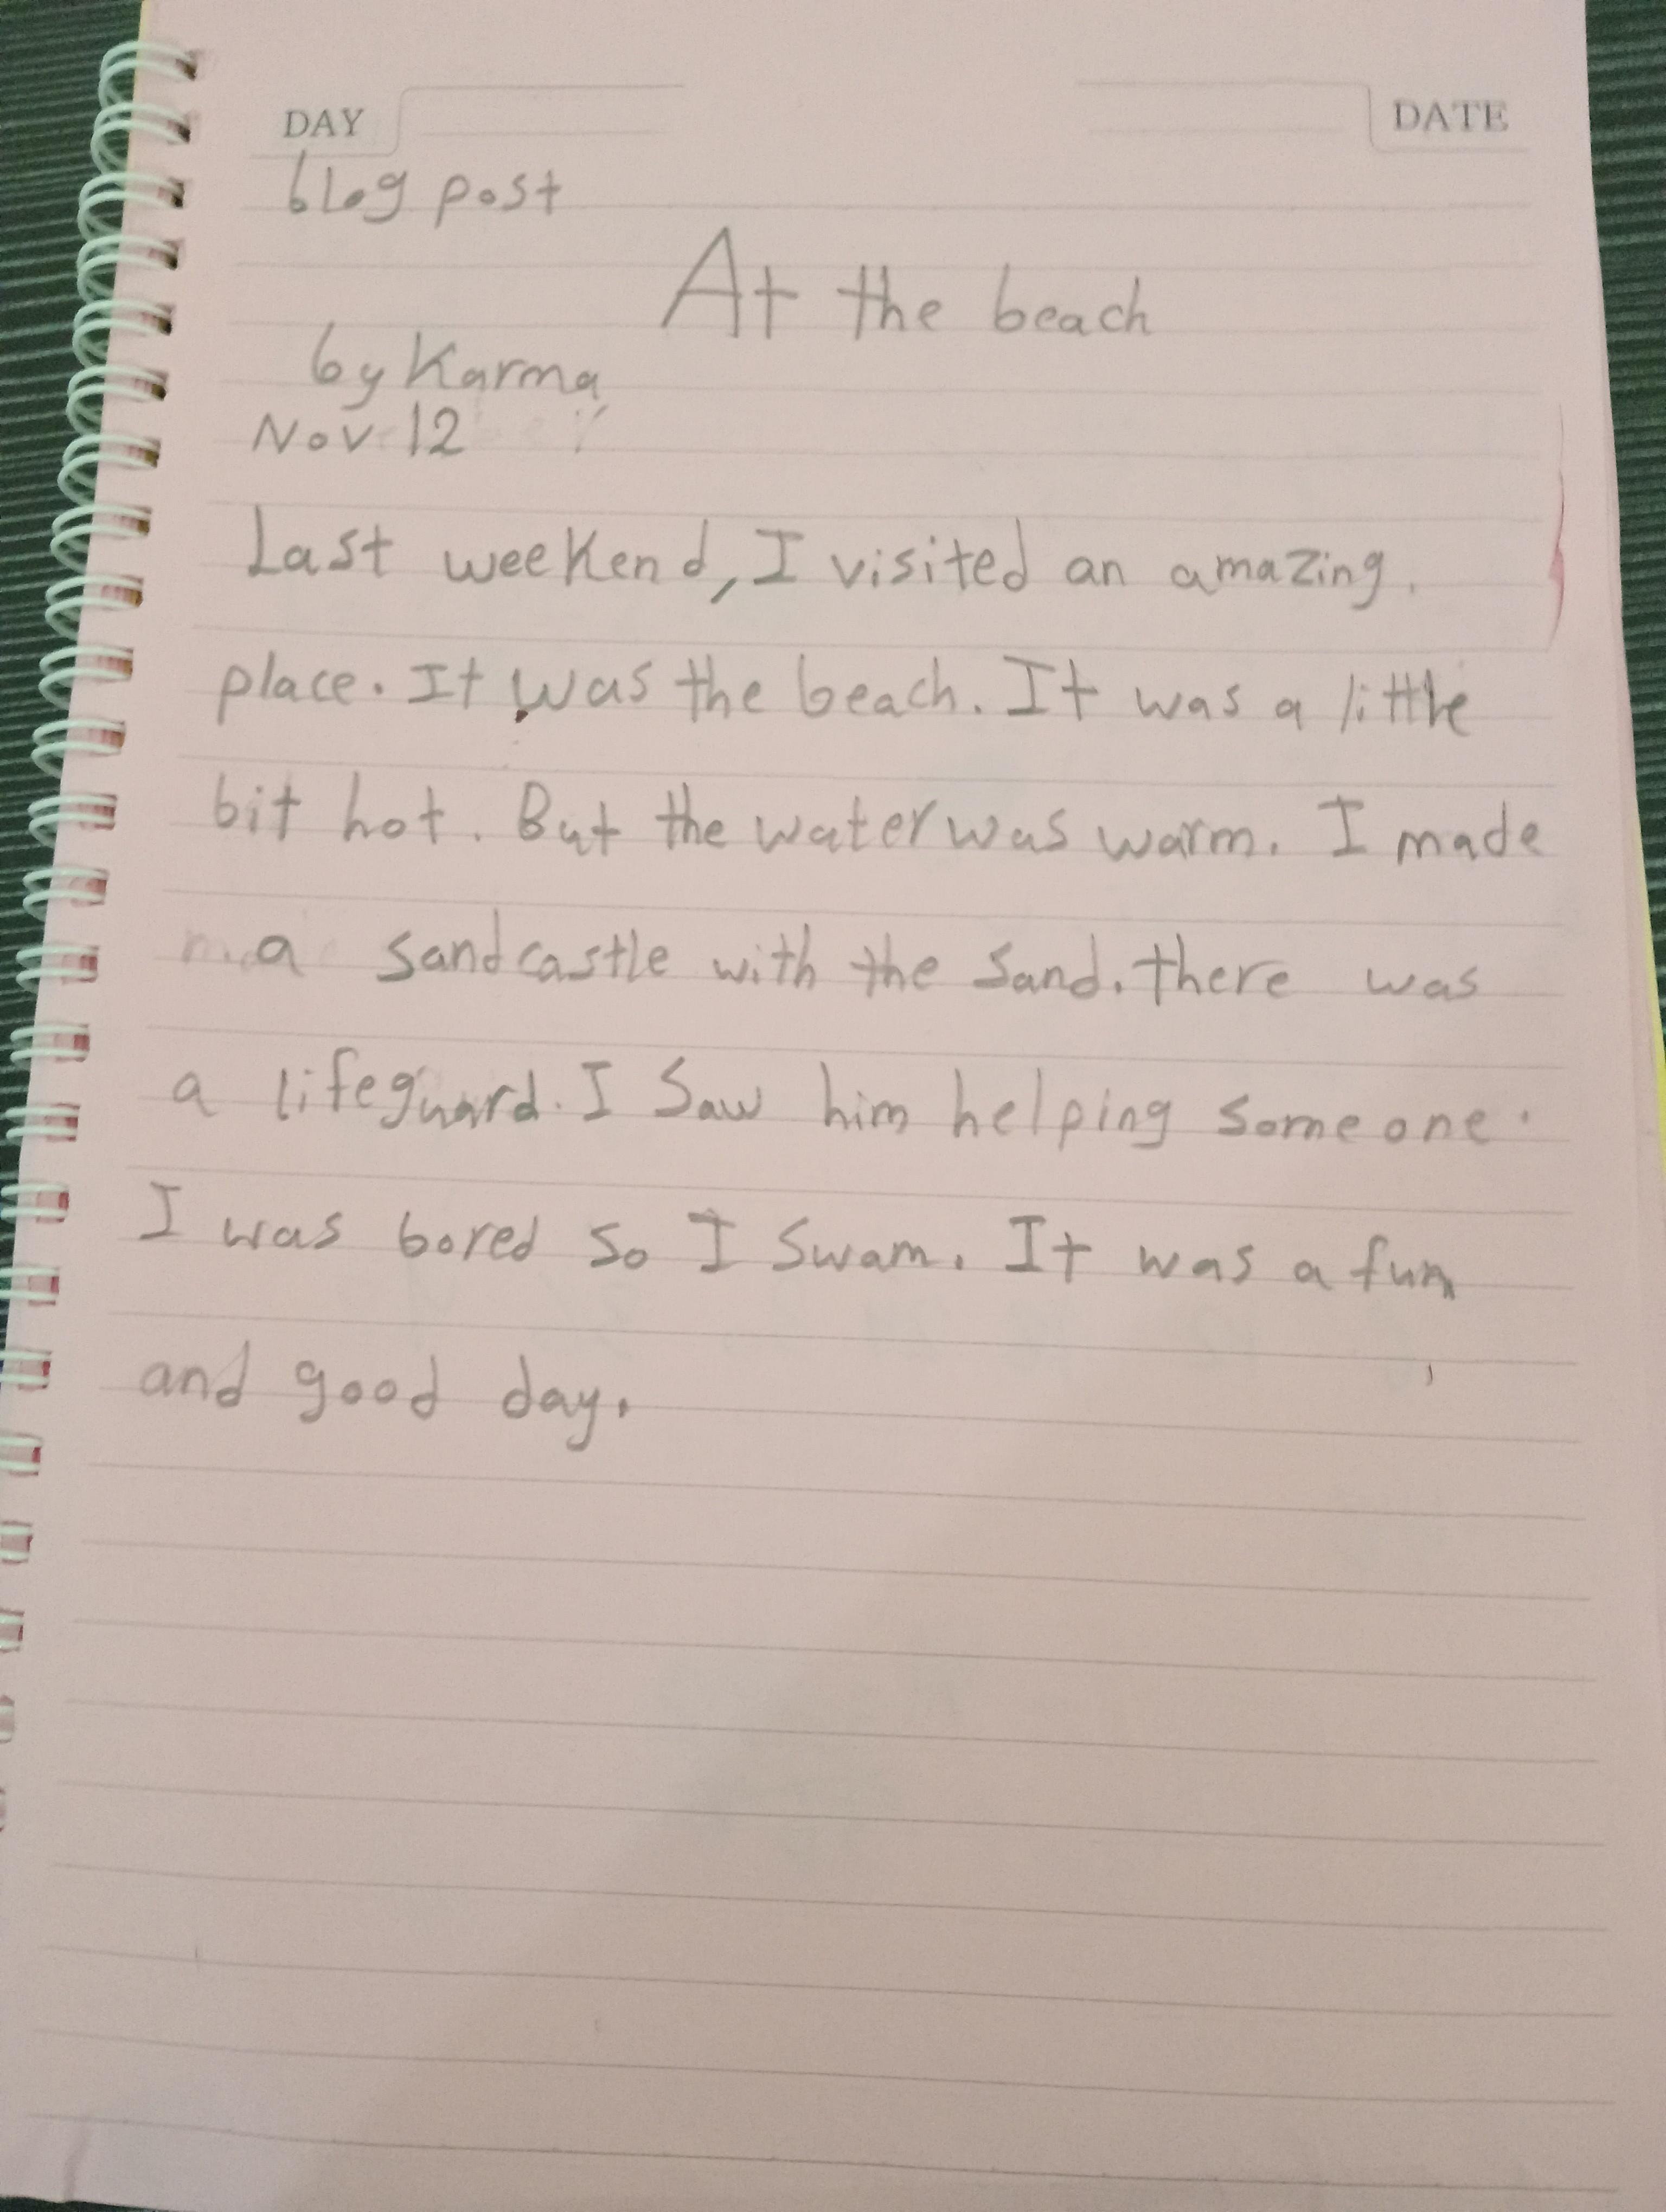 DAY
DATE
blog post
At the beach
by Karma
Nov 12
Last weekend, I visited an amazing.
place. It was the beach. It was a little
bit hot. But the water was warm. I made
a sandcastle with the sand. there was
a lifeguard. I saw him helping someone.
I was bored so I swam. It was a fun
and good day.